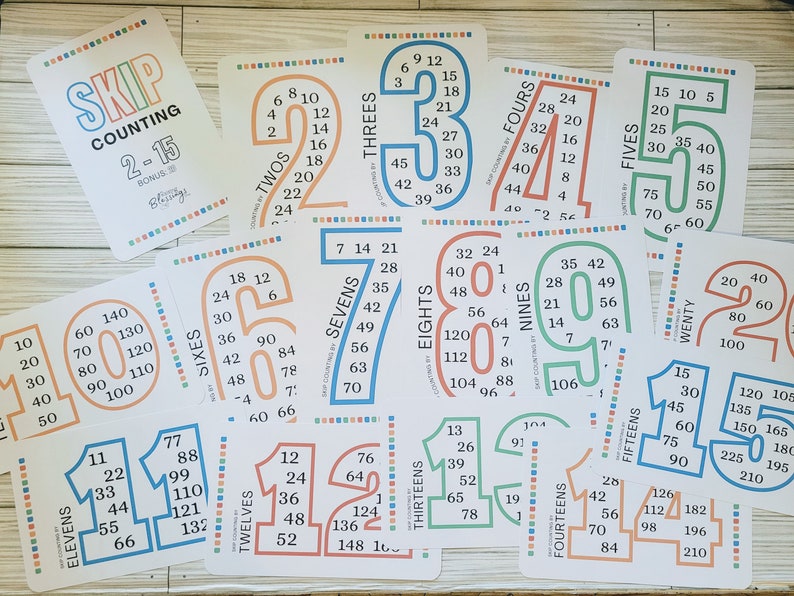 SKIP
COUNTING
2 - 15
BONUS: 20
Blessings
COUNTING BY
TWOS
6 8 10
4 12
2 14
16
18
20
22
24
THREES
9
6 12
3 15
18
21
24 27
30
45 33
42 36
39
SKIP COUNTING BY
FOURS
24
28 20
32 16
36 12
40 8
44 4
48 52 56
FIVES
15 10 5
20
25
30 35
40
45
75 50
70 55
65
SIXES
18 12
24 6
30
36
42 90
48 84
54 78
60
SKIP COUNTING BY
SEVENS
7 14 21
28
35
42
49
56
63
70
EIGHTS
32 24
40
48
56
64
120
112
104 96
SKIP COUNTING BY
NINES
35 42
28 49
21 56
14 63
7
106
COUNTING BY
WENTY
20 40
60
80
100
10
20
30
40
50
140
60 130
70 120
80 110
90 100
SKIP COUNTING BY
ELEVENS
11
22
33
44
55
66
77
88
99
110
121
132
SKIP COUNTING BY
TWELVES
12
24
36
48
52
76
64
124
136
148
SKIP COUNTING BY
THIRTEENS
13
26
39
52
65
78
104
91
SKIP COUNTING BY
FOURTEENS
28
42
56
70
84
126
112
98
182
196
210
SKIP COUNTING BY
FIFTEENS
15
30
45
60
75
90
120 105
135
150 165
180
225 195
210